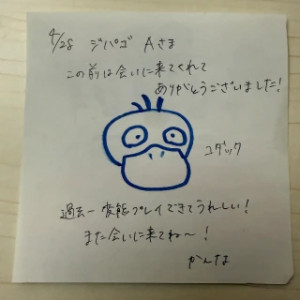 4/28 ジパゴ Aさま
この前は会いに来てくれて
ありがとうございました!
コダック
過去一変態プレイできてうれしい!
また会いに来てね〜!
かんな